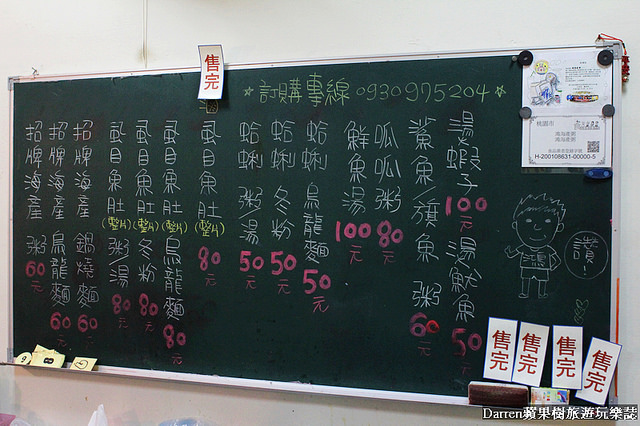 售完
☆訂購專線 0930975204☆
湯蝦子100 湯魷魚50元
鯊魚/旗魚 粥60元
呱呱粥80元
鮮魚湯100元
蛤蜊烏龍麵50元
蛤蜊 冬粉50元
蛤蜊 粥/湯50元
虱目魚肚(整片)80元
虱目魚肚(整片)烏龍麵80元
虱目魚肚(整片)冬粉80元
虱目魚肚(整片)粥/湯80元
招牌海產 鍋燒麵60元
招牌海產 烏龍麵60元
招牌海產 粥60元
讚!
桃園市
H-200108631-00000-5
售完
售完
售完
售完
Darren蘋果樹旅遊玩樂誌